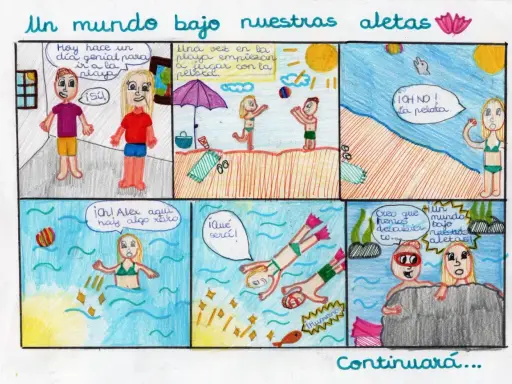 Un mundo bajo nuestras aletas
Hoy hace un
día genial para
ir a la
playa
¡Sí!
Una vez en la
playa empiezan
a jugar con la
pelota.
¡OH NO!
la pelota.
¡Oh! Alex aquí
hay algo raro
¡Qué
será!
Creo que
hemos
descubierto
Un
mundo
bajo
nuestras
aletas!
Continuará...